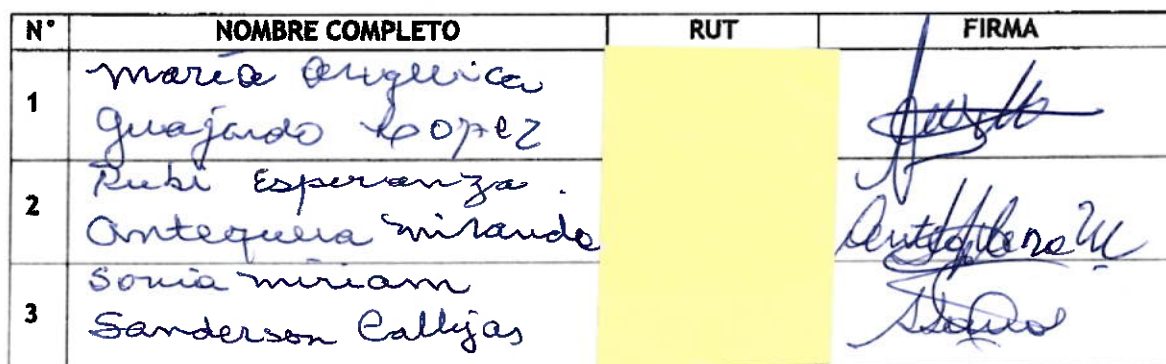 N° NOMBRE COMPLETO RUT FIRMA
1 María Angelica
Guajardo Lopez
2 Rubi Esperanza.
Antequera Miranda
3 Sonia Miriam
Sanderson Callejas